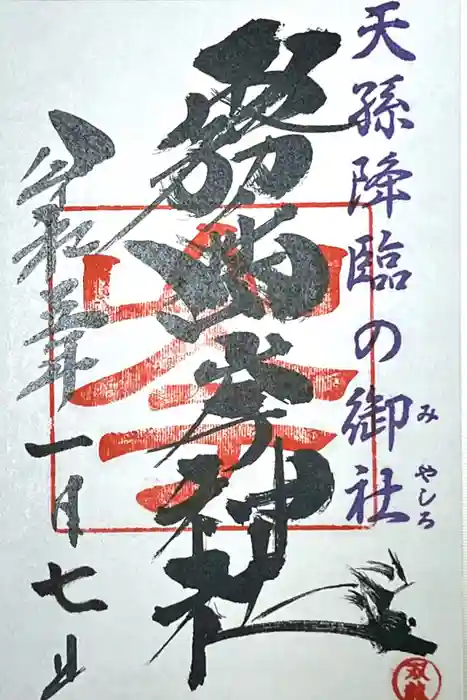 天孫降臨の御社
みやしろ
霧島岑神社
令和五年
一月七日